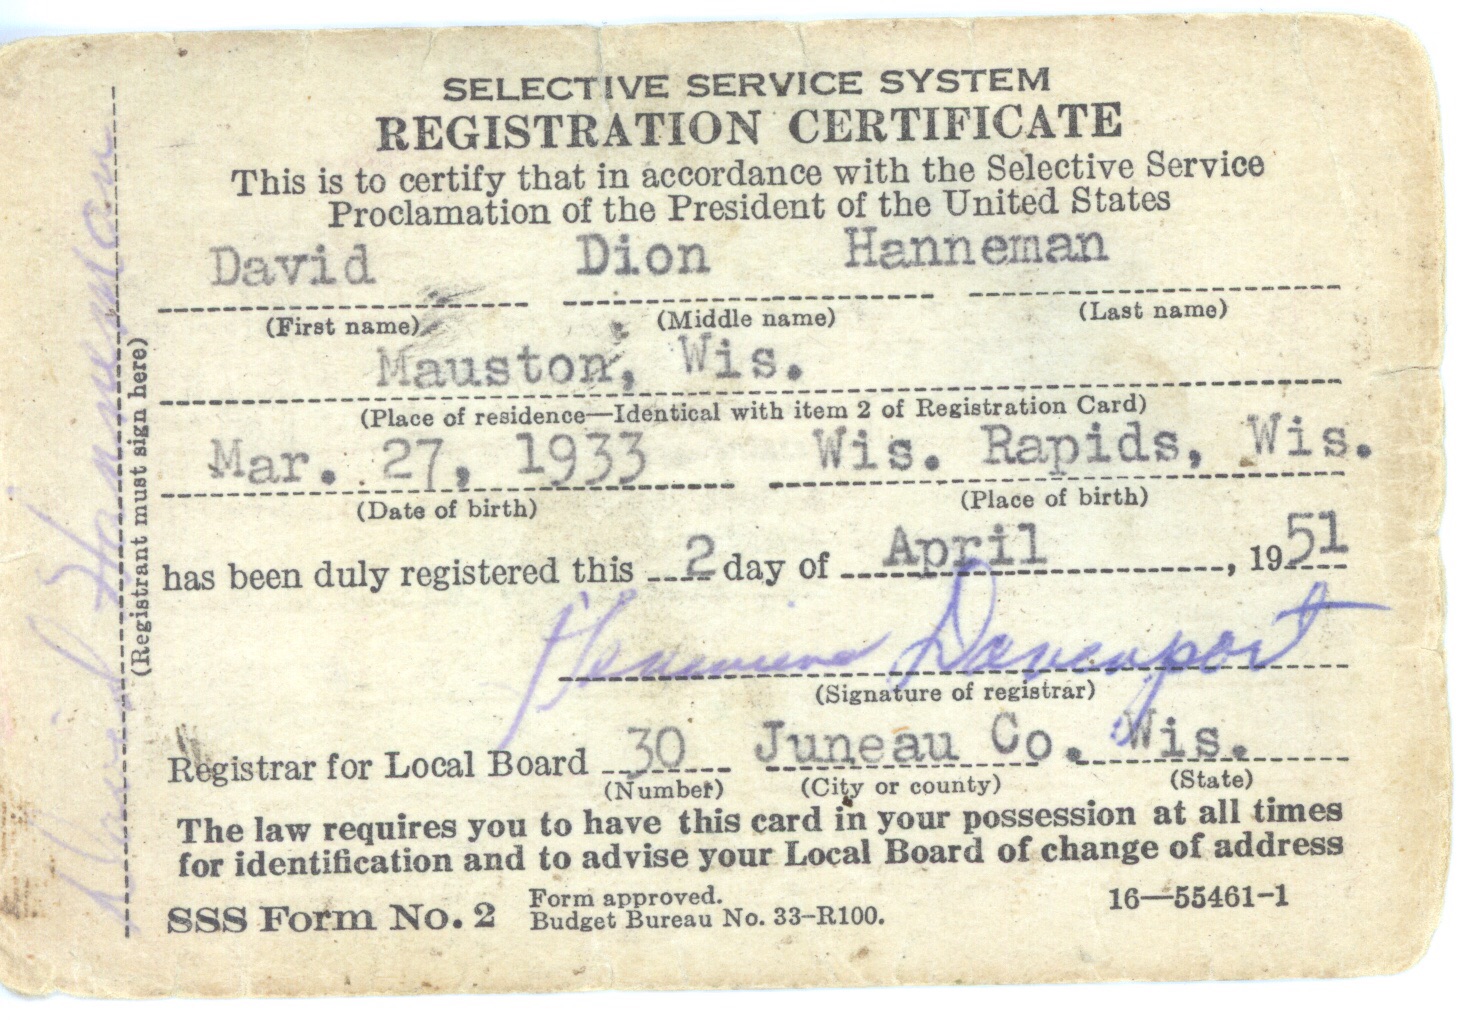 SELECTIVE SERVICE SYSTEM
REGISTRATION CERTIFICATE
This is to certify that in accordance with the Selective Service
Proclamation of the President of the United States
David Dion Hanneman
(First name) (Middle name) (Last name)
Mauston, Wis.
(Place of residence—Identical with item 2 of Registration Card)
Mar. 27, 1933 Wis. Rapids, Wis.
(Date of birth) (Place of birth)
has been duly registered this 2 day of April, 1951
Genevieve Davenport
(Signature of registrar)
Registrar for Local Board 30 Juneau Co. Wis.
(Number) (City or county) (State)
The law requires you to have this card in your possession at all times
for identification and to advise your Local Board of change of address
SSS Form No. 2 Form approved.
Budget Bureau No. 33-R100. 16—55461-1
(Registrant must sign here)
David Hanneman